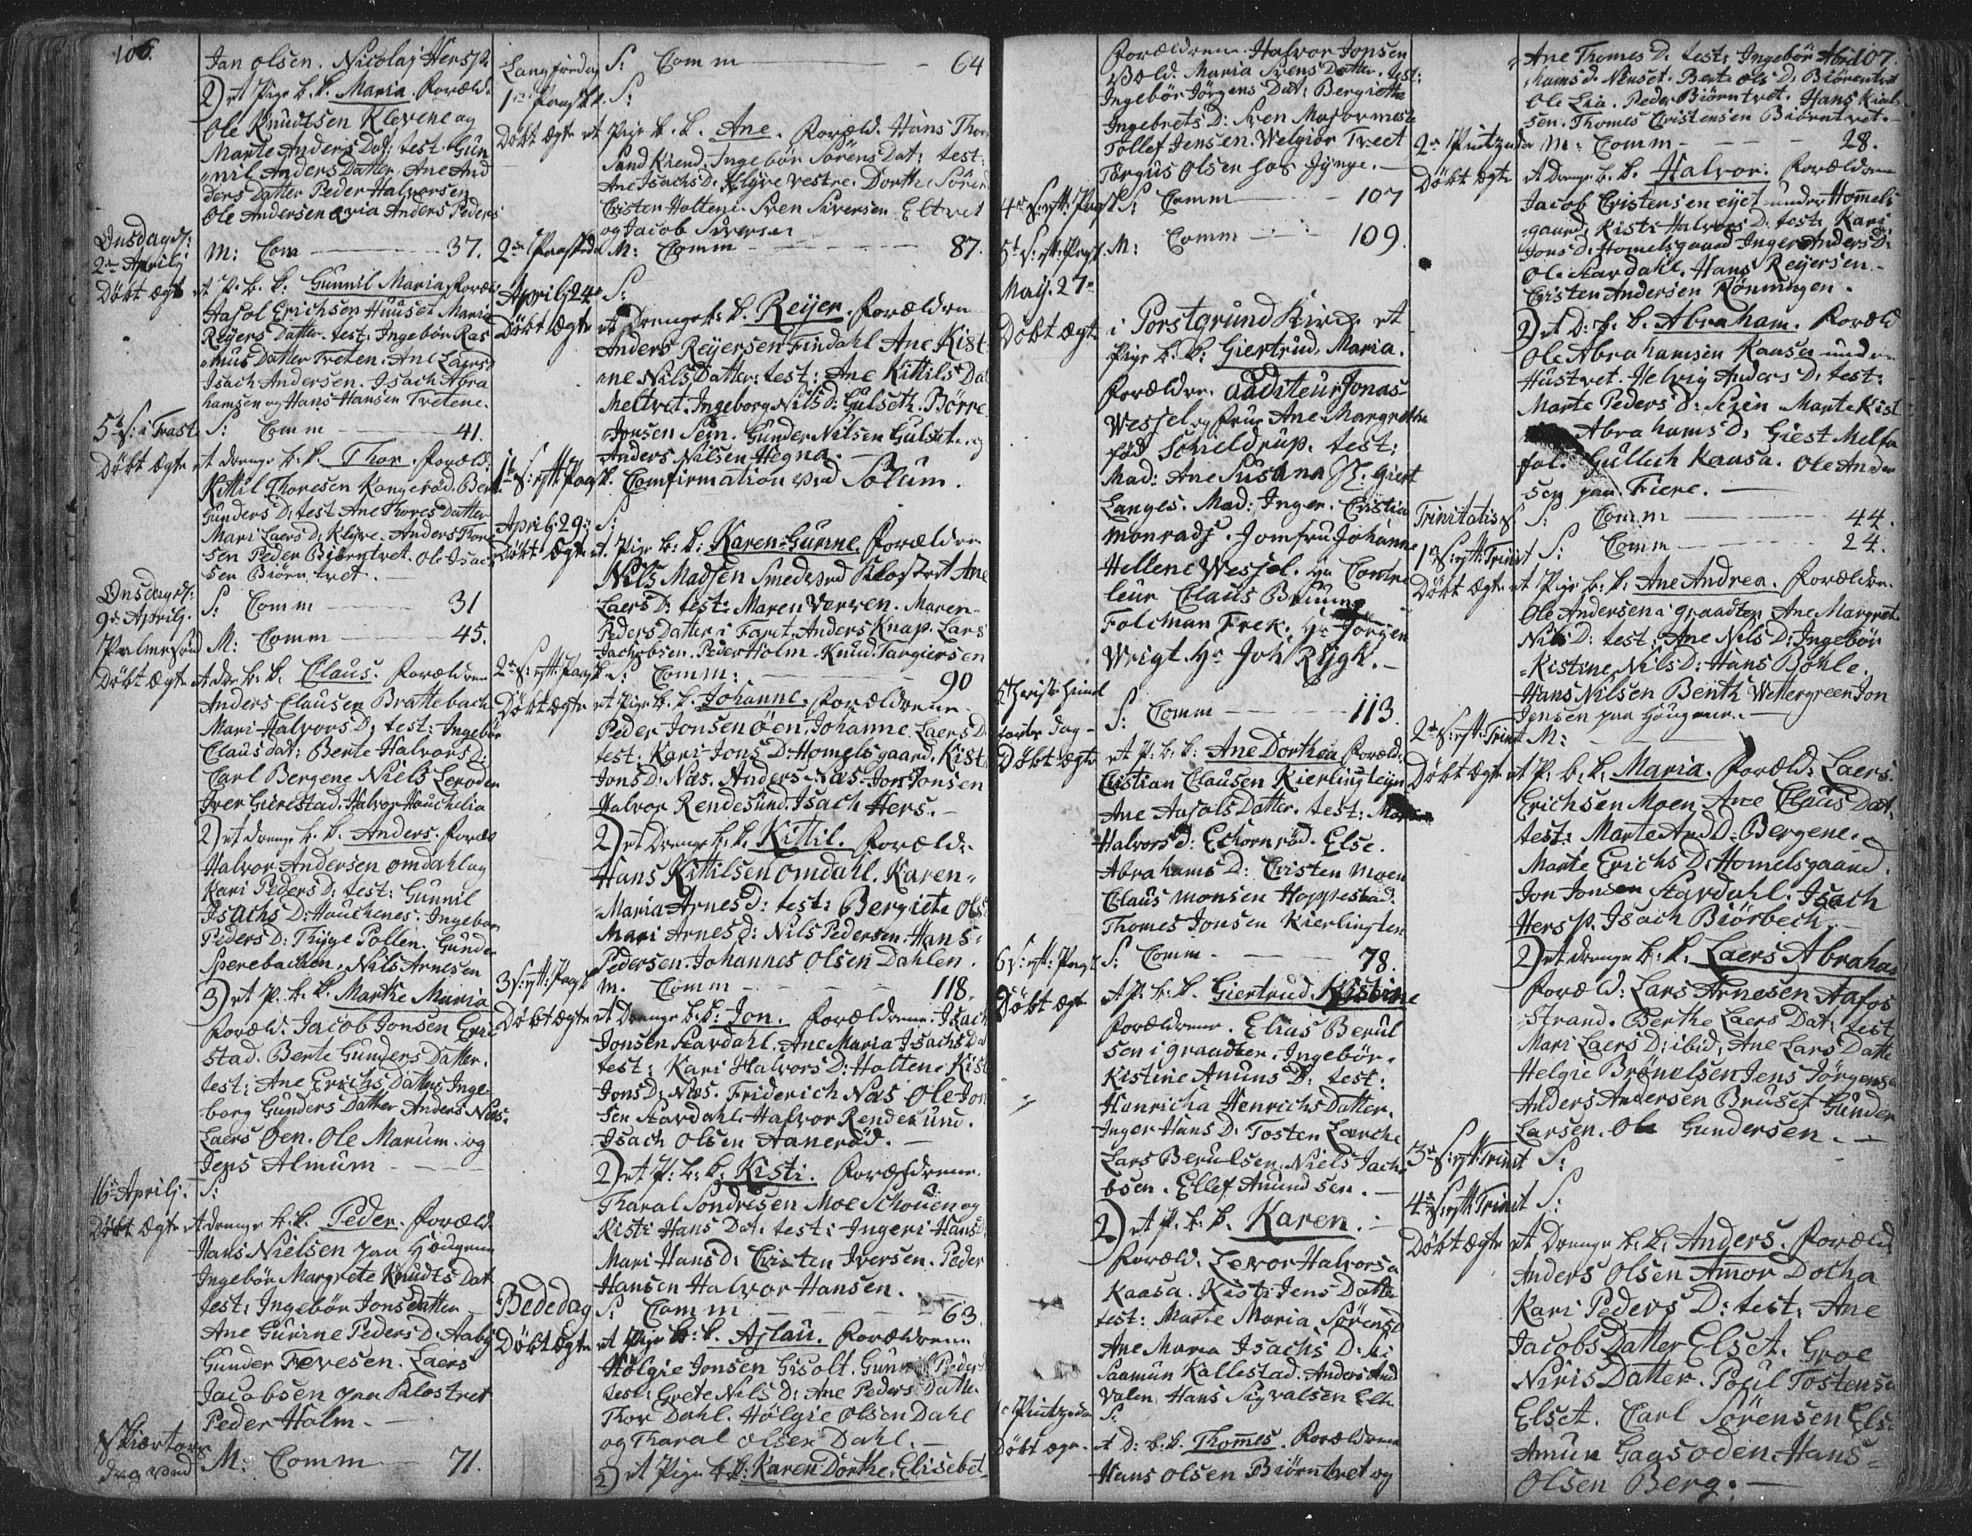 106.
Jan Olsen. Nicolaj Hersp.
2) et Pige k. k. Maria. Foræld:
Ole Knudtsen Klevene og
Marte Anders Dat: test. Gun
nil Anders Datter. Ane And
ders Datter Peder Halvorsen
Ole Andersen Anders Peders
Onsdag d:
2. Aprilj
M: Com 37.
Døbt Ægte et P. k. k. Gunnil Maria Foræld
Aasol Erichsen Huuset Maria
Reyers Datter. test: Ingebør Ras
mus Datter Treten. Ane Laers
Isach Andersen. Isach Abra
hamsen og Hans Hansen Tretene.
5te S: i Faste S: Comm 41.
Døbt Ægte et drenge k. k. Thor. Foræld:
Kittil Thoresen Kongerød. Bert
Gunders D: test Ane Thores Datter
Mari Laers D: Klyve. Anders Thore
sen Peder Biørntvet. Ole Isach
sen Biørntvet.
Onsdag d:
9de Aprilj. S: Comm 31
Palmesønd M: Comm 45.
Døbt Ægte et dr: k. k. Claus. Forældrene
Anders Clausen Brattebach
Mari Halvors D: test: Ingebør
Claus dat: Berte Halvors D:
Carl Bergene Niels Lerodde
Iver Gierestad. Halvor Houchelia
2) et drenge k. k. Anders. Foræld
Halvor Andersen Omdahl og
Kari Peders D: test: Gunnil
Isachs D: Houchenes. Ingebør
Peders D: Thyge Pollen. Gunder
Sperebachen. Nils Arnesen
3) et P. k. k. Marthe Maria
Foræld. Jacob Jonsen Erie
stad. Berte Gunders Datter.
test: Ane Erichs Datter Inge
borg Gunders Datter Anders Næs.
Laers Øen. Ole Marum. og
Jens Almum
16de Aprilj. S:
Døbt Ægte et drenge k. k. Peder. Foræld
Hans Nielsen paa Hougene
Ingebør Margrete Knudts Dat
test: Ingebør Jons datter
Ane Gurine Peders D: Aaby
Gunder Fevesen. Laers
Jacobsen paa Klostret
Peder Holm.
Skiertors
dag M: Comm 71.
Langfredag S: Comm 64
1te Paaske. S:
Døbt Ægte et Pige k. k. Ane. Foræld. Hans Thor
Sand Kiend. Ingebør Sørens Dat: test:
Ane Isachs D. Klyve vestre. Dorthe Søren
Cristen Holtene. Sven Siversen Eltvet
og Jacob Siversen
2den Paaskeda M: Comm 87.
Aprilj 24de S:
Døbt Ægte et Drenge k. k. Reyer. Forældrene
Anders Reyersen Findahl Ane Kist
ne Nils Datter: test: Ane Kittils Da
Meltvet. Ingeborg Nils D: Gulseth. Børre
Jonsen Sem. Gunder Nilsen Gulset. og
Anders Nilsen Hegna.
1te S: eft: Paask. Comfirmation ved Solum.
Aprilj. 29: S:
Døbt Ægte et Pige k. k: Karen Gurine. Forældrene
Nils Madsen Smed ved Klostret Ane
Laers D: test: Maren Verven. Maren
Peders Datter i Faret. Anders Knap. Lars
Jachobsen. Peder Holm. Knud Targiersen
2den S: eft: Paask S: Comm: 90
Døbt Ægte et Pige k. k. Johanne. Forældrene
Peder Jonsen Øen. Johanne Laers D
test. Kari Jons D: Homelsgaard. Kist
Jons D: Næs. Anders Næs. Jon Jonsen
Halvor Rendesund. Isach Hers.
2) et Drenge k. k. Kittil. Foræld:
Hans Kittilsen Omdahl. Karen
Maria Arnes d: test: Bergiete Ols
Mari Arnes d: Nils Pedersen. Hans
Pedersen. Johannes Olsen Dahlen.
3 S: eft: Paask M. Comm 118.
Døbt Ægte et Drenge k. k: Jon. Forældrene. Isach
Jonsen Aardahl. Ane Maria Isachs Da
test: Kari Halvors D: Holtene Kist
Jons D: Næs. Friderich Næs Ole Jon
sen Aardahl. Halvor Rendesund.
Isach Olsen Aanerød.
2) et P. k. k. Kisti. Forældrene.
Tharal Sondresen Moe Schouen og
Kisti Hans Dat. test: Ingeri Hans
Mari Hans D: Cristen Iversen. Peder
Hansen Halvor Hansen.
Bededag S: Comm 63
Døbt Ægte et Pige k. k. Aslau. Forældrene
Hølgie Jonsen Gisolt. Gunnil Peders
test: Grete Nils D: Ane Peders Datte
Thor Dahl. Hølgie Olsen Dahl
og Tharal Olsen Dahl.
2) et Pige k. k: Karen Dorthe Elisebet
Forældrene. Halvor Jonsen
Bold. Maria Svens Datter. test:
Ingebør Jørgens Dat: Bergiette
Ingebrets D: Sven Masormeste
Tollef Jensen. Welgiør Tveet
Tærgus Olsen hos Jynge.
4de S: eft: Paas S: Comm 107
5te S: eft: Paask. M: Comm 109.
Maij. 27de
Døbt Ægte i Porsgrund Kirche et
Pige k. k: Giertrud Maria.
Forældre. Auditeur Jonas
Wessel og Frue Ane Margrethe
fød Schieldrup. test:
Mad: Ane Susana Sl. Giert
Langes. Mad: Inger Cristia
Monrads. Jomfru Johanne
Hellene Wessel. Hr Contro
leur Claus Bruun
Folchman Frek. Hr Jørgen
Weigt. Hr Joh Rygh.
Christi Himel
farts Dag S: Comm 113.
Døbt Ægte et P: k. k: Ane Dorthea Foræld:
Cristian Clausen Kierlingteign
Ane Aasols Datter. test: Maren
Halvors d: Echornrød. Else.
Abrahams D: Cristen Moen
Claus Monsen Hoppestad.
Thomes Jonsen Kierlingten
6 S: eft: Paask S: Comm. 78.
Døbt Ægte et P: k. k. Giertrud Kistine
Forældrene. Elias Berul
sen i graadten. Ingebør
Kistine Amuns D: test:
Henricha Henrichs Datter.
Inger Hans D. Tosten Lerche
Lars Berulsen. Niels Jacho
bsen. Ellef Amundsen.
2) et P. k. k. Karen.
Foræld. Levor Halvorsen
Kaasa. Kisti Jens Datte
test: Marte Maria Sørens D
Ane Maria Isachs D:
Saamun Kallestad. Anders And
Valen Hans Sigvalsen Elk
1te Pintzedag S:
Døbt Ægte et D: k. k. Thomes. Forældrene
Hans Olsen Biørntvet og
107.
Ane Thomes D. test: Ingebør Abra
hams d: Nenset. Berte Ols D: Biørntvet
Ole Lia. Peder Biørntvet. Hans Kield
sen. Thomes Cristensen Biørntvet.
2den Pintzedag M: Comm 28.
Døbt Ægte et Drenge k. k. Halvor. Forældrene
Jacob Cristensen eyet under Hommels
gaard. Kisti Halvors D: test: Kari
Jons D: Homelsgaard Inger Anders D:
Ole Aardahl. Hans Reyersen
Cristen Andersen Rønningen.
2) et D: k. k. Abraham. Foræld
Ole Abrahamsen Kaasa under
Hustvet. Helvig Anders D: test:
Marte Peders D: Marte Kist
Abrahams D: Giest
Gullich Kaasa. Ole Ander
sen paa Fiere.
Trinitatis S. S: Comm 44.
1te S. eft: Trinit S: Comm 24.
Døbt Ægte et Pige k. k. Ane Andrea. Forældrene
Ole Andersen i graadten Ane Margret
Nils D: test: Ane Nils D: Ingebør
Kistine Nils D: Hans Bøhle.
Hans Nilsen Benth Wettergreen Jon
Jensen paa Hougene.
2den S: eft: Trinit M:
Døbt Ægte et P: k. k. Maria. Foræld: Laers
Erichsen Moen. Ane Claus Dat.
test: Marte And D: Bergene.
Marte Erichs D: Homelsgaard
Jon Jonsen Aardahl. Isach
Hersp. Isach Biørbech.
2) et drenge k. k. Laers Abraham
Foræld: Lars Arnesen Aafos
Strand. Berthe Laers Dat: test
Mari Laers D: ibid: Ane Lars Datte
Helgie Brønelsen Jens Jørgensen
Anders Andersen Bruset Gunder
Larsen. Ole Gundersen.
3de S: eft: Trinit S:
4de S: eft Trinit S:
Døbt Ægte et Drenge k. k. Anders. Foræld
Anders Olsen Ammor Docha
Kari Peders D: test: Ane
Jacobs Datter Elset. Groe
Niris Datter. Poul Tostensen
Elset. Carl Sørensen Els
Amun Gaasoden. Hans
Olsen Berg: